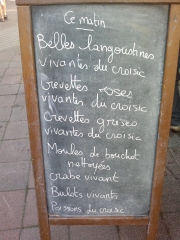 Ce matin
Belles langoustines
vivantes du croisic
Crevettes roses
vivantes du croisic
Crevettes grises
vivantes du croisic
Moules de bouchot
nettoyées
crabe vivant
Bulots vivants
Poissons du croisic